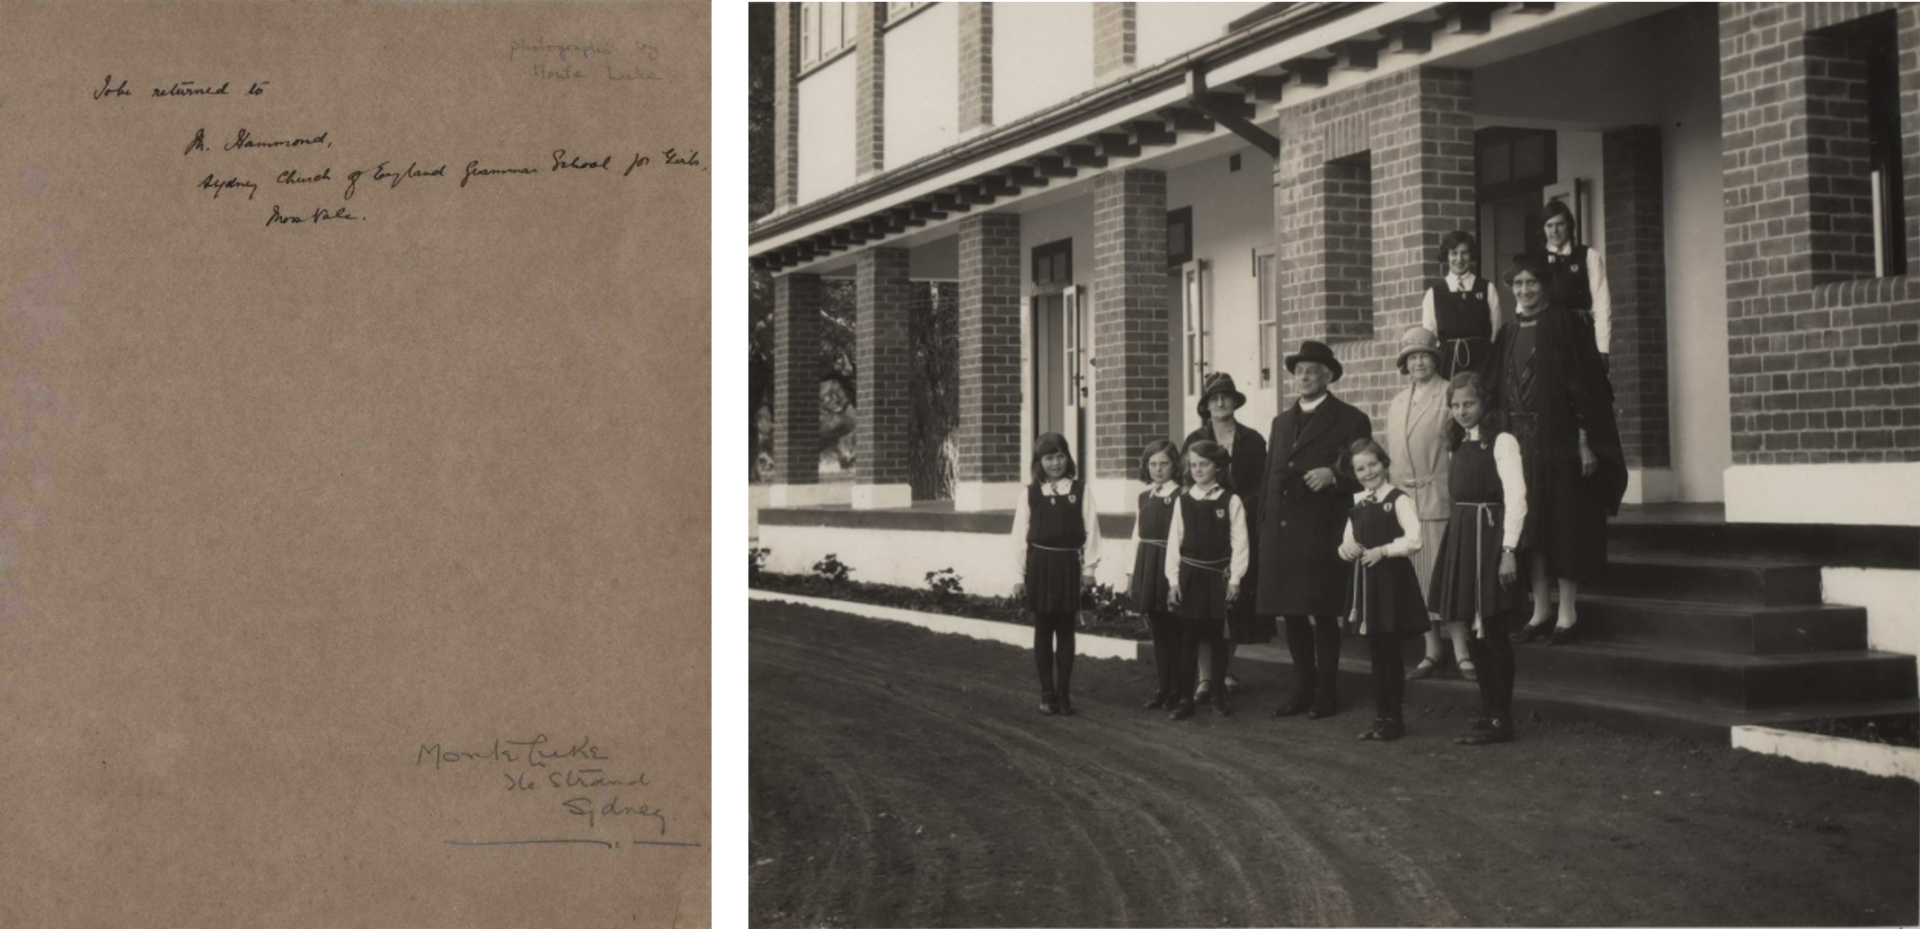 photographs by
Monte Luke
To be returned to
M. Hammond,
Sydney Church of England Grammar School for Girls,
Moss Vale.
Monte Luke
The Strand
Sydney.